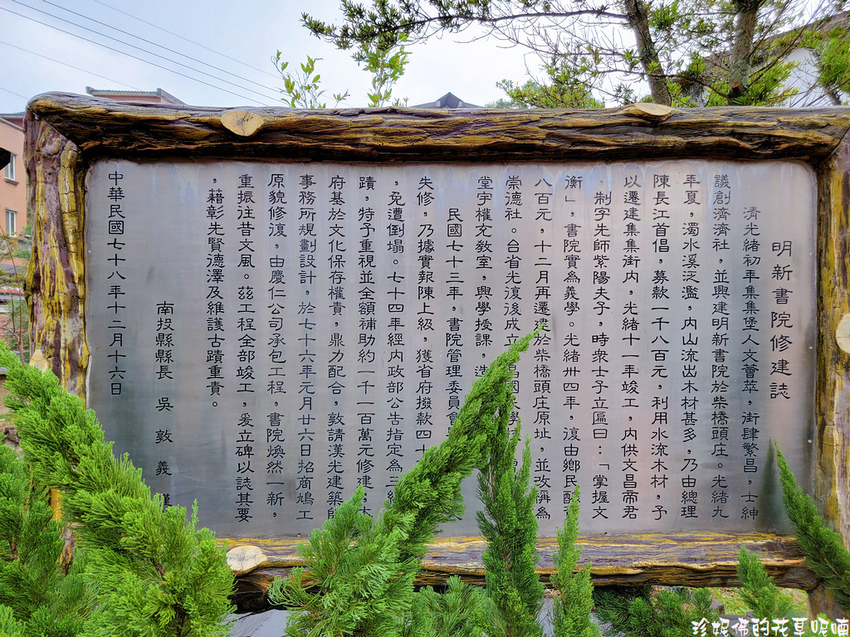 明新書院修建誌
清光緒初年集集堡人文薈萃,街肆繁昌,士紳
議創濟濟社,並興建明新書院於柴橋頭庄。光緒九
年夏,濁水溪泛濫,內山流出木材甚多,乃由總理
陳長江首倡,募款一千八百元,利用水流木材,予
以遷建集集街內,光緒十一年竣工,內供文昌帝君
、制字先師紫陽夫子,時眾士子立匾曰:「掌握文
衡」,書院實為義學。光緒卅四年,復由鄉民醵
八百元,十二月再遷建於柴橋頭庄原址,並改稱為
崇德社。台省光復後成立
堂宇權充教室,興學授課,
民國七十三年,書院管理委員會
失修,乃據實報陳上級,獲省府撥款四十
,免遭倒塌。七十四年經內政部公告指定為三級
蹟,特予重視並全額補助約一千一百萬元修建,
府基於文化保存權責,鼎力配合,敦請漢光建築師
事務所規劃設計,於七十六年元月廿六日招商鳩工
原貌修復,由慶仁公司承包工程,書院煥然一新,
重振往昔文風。茲工程全部竣工,爰立碑以誌其要
,藉彰先賢德澤及維護古蹟重責。
南投縣縣長 吳敦義
中華民國七十八年十二月十六日